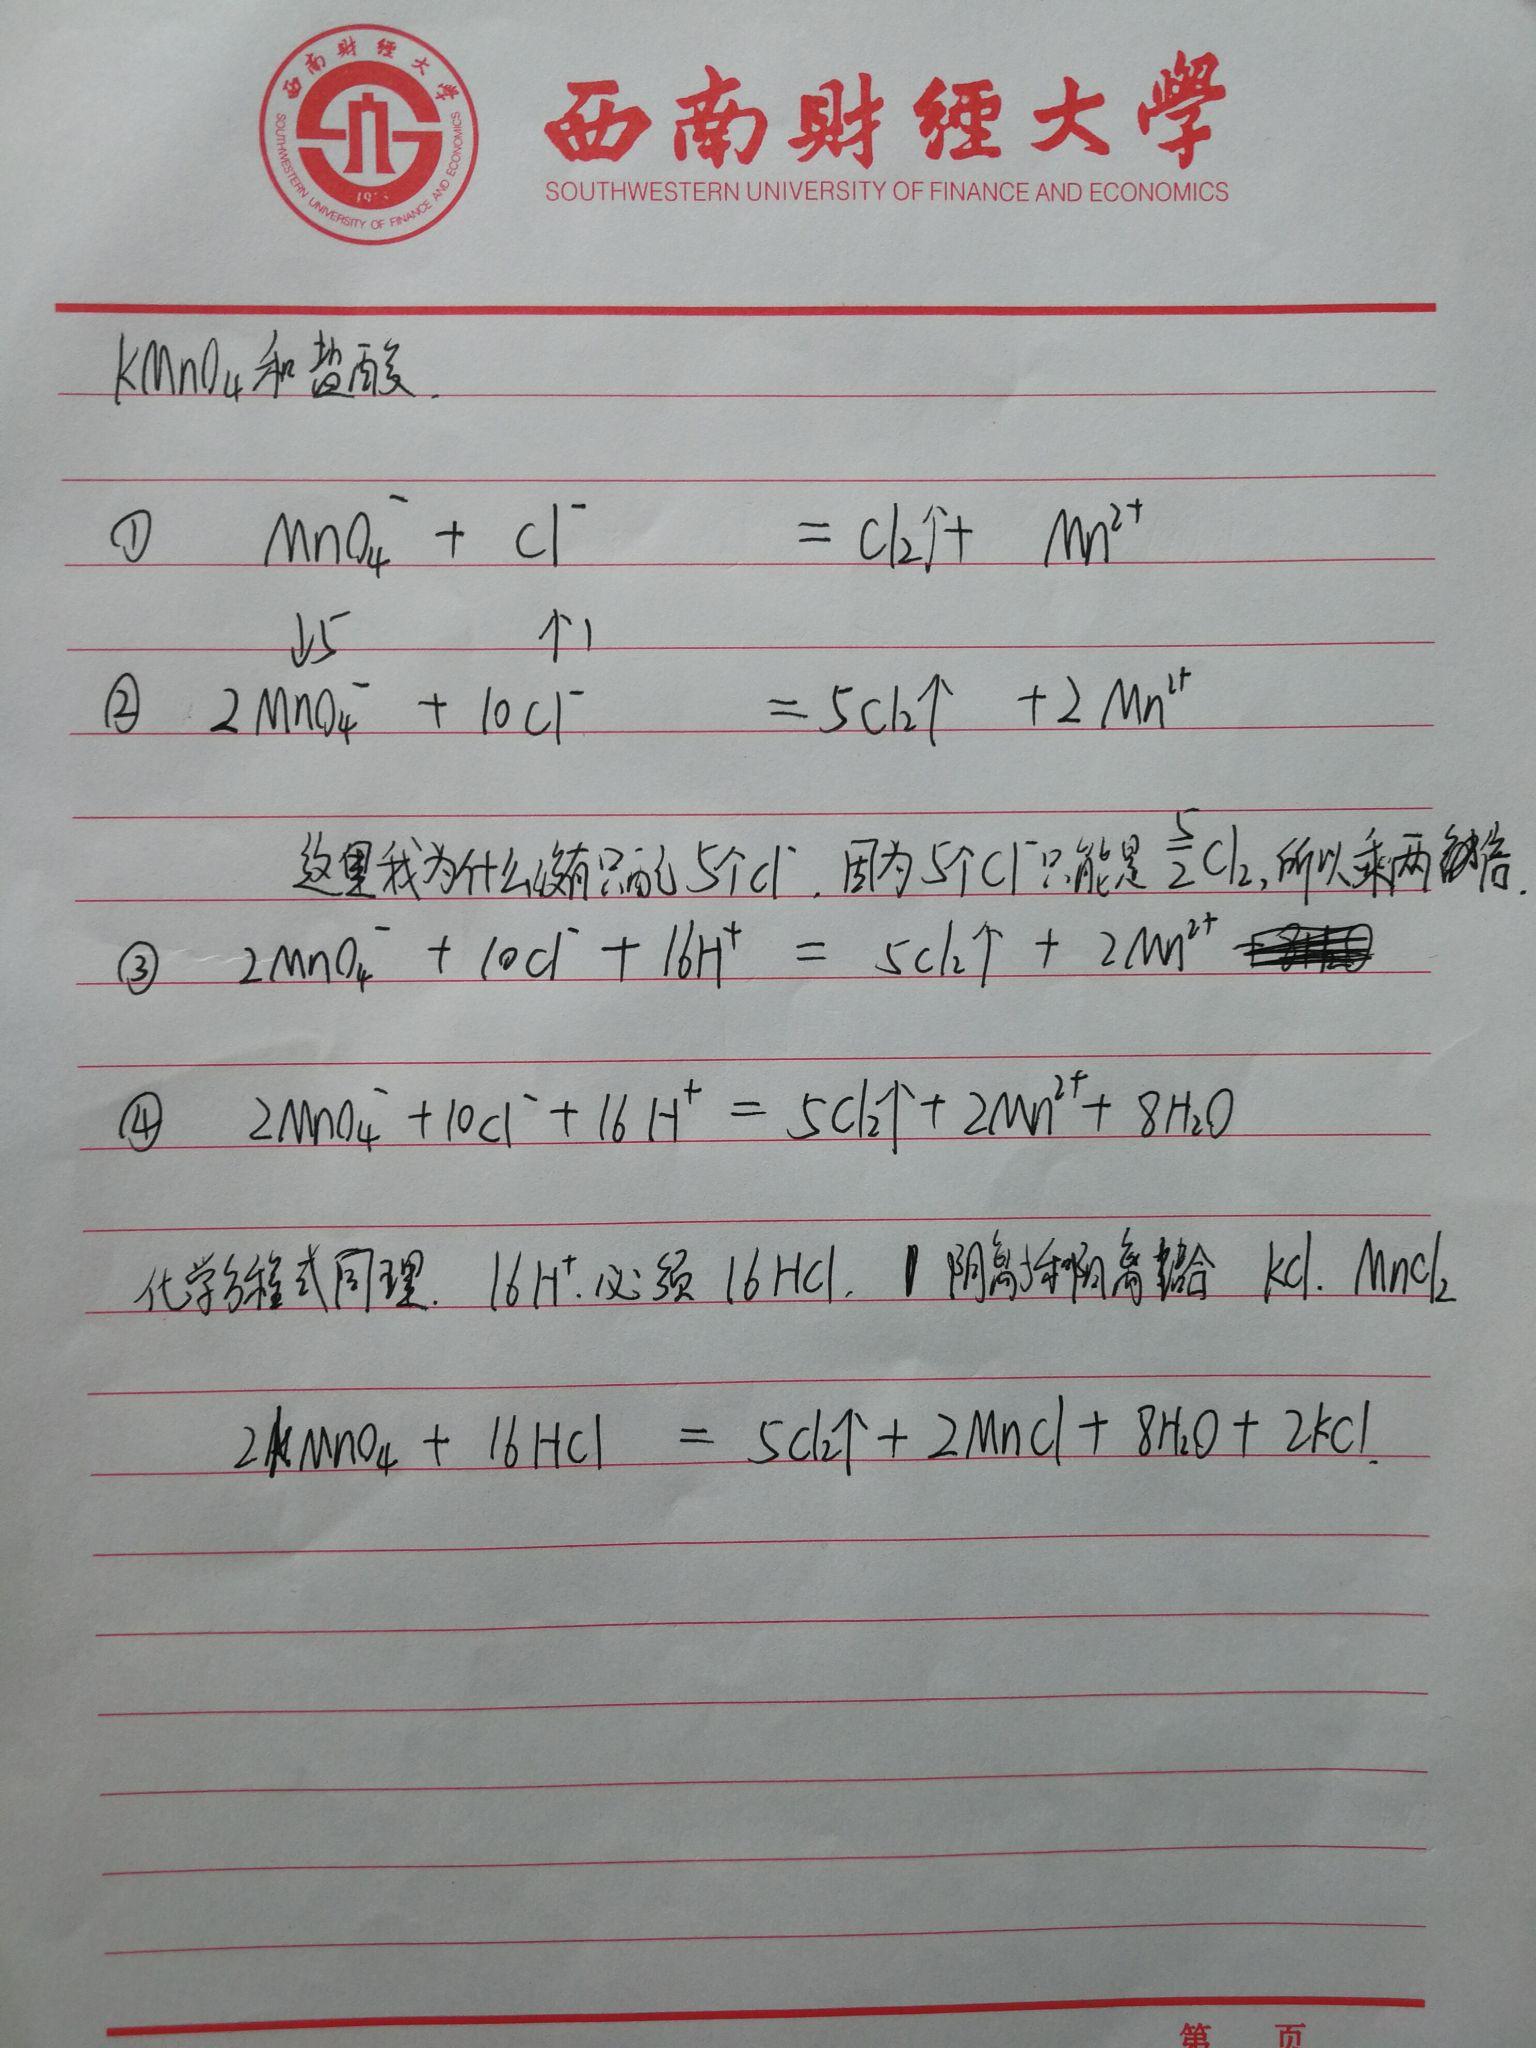 西南财经大学
SOUTHWESTERN UNIVERSITY OF FINANCE AND ECONOMICS
西南財經大學
SOUTHWESTERN UNIVERSITY OF FINANCE AND ECONOMICS
KMnO₄和盐酸.
① MnO₄⁻ + Cl⁻ = Cl₂↑+ Mn²⁺
↓5 ↑1
② 2MnO₄⁻ + 10Cl⁻ = 5Cl₂↑ +2Mn²⁺
这里我为什么没有只配5个Cl⁻, 因为5个Cl⁻只能是5/2Cl₂,所以乘两倍.
③ 2MnO₄⁻ + 10Cl⁻ + 16H⁺ = 5Cl₂↑ + 2Mn²⁺
④ 2MnO₄⁻ +10Cl⁻ +16H⁺ = 5Cl₂↑+2Mn²⁺+ 8H₂O
化学方程式同理. 16H⁺.必须16HCl. 阴离子和阳离结合 KCl. MnCl₂
2KMnO₄ + 16HCl = 5Cl₂↑+ 2MnCl+ 8H₂O + 2KCl.
第 页